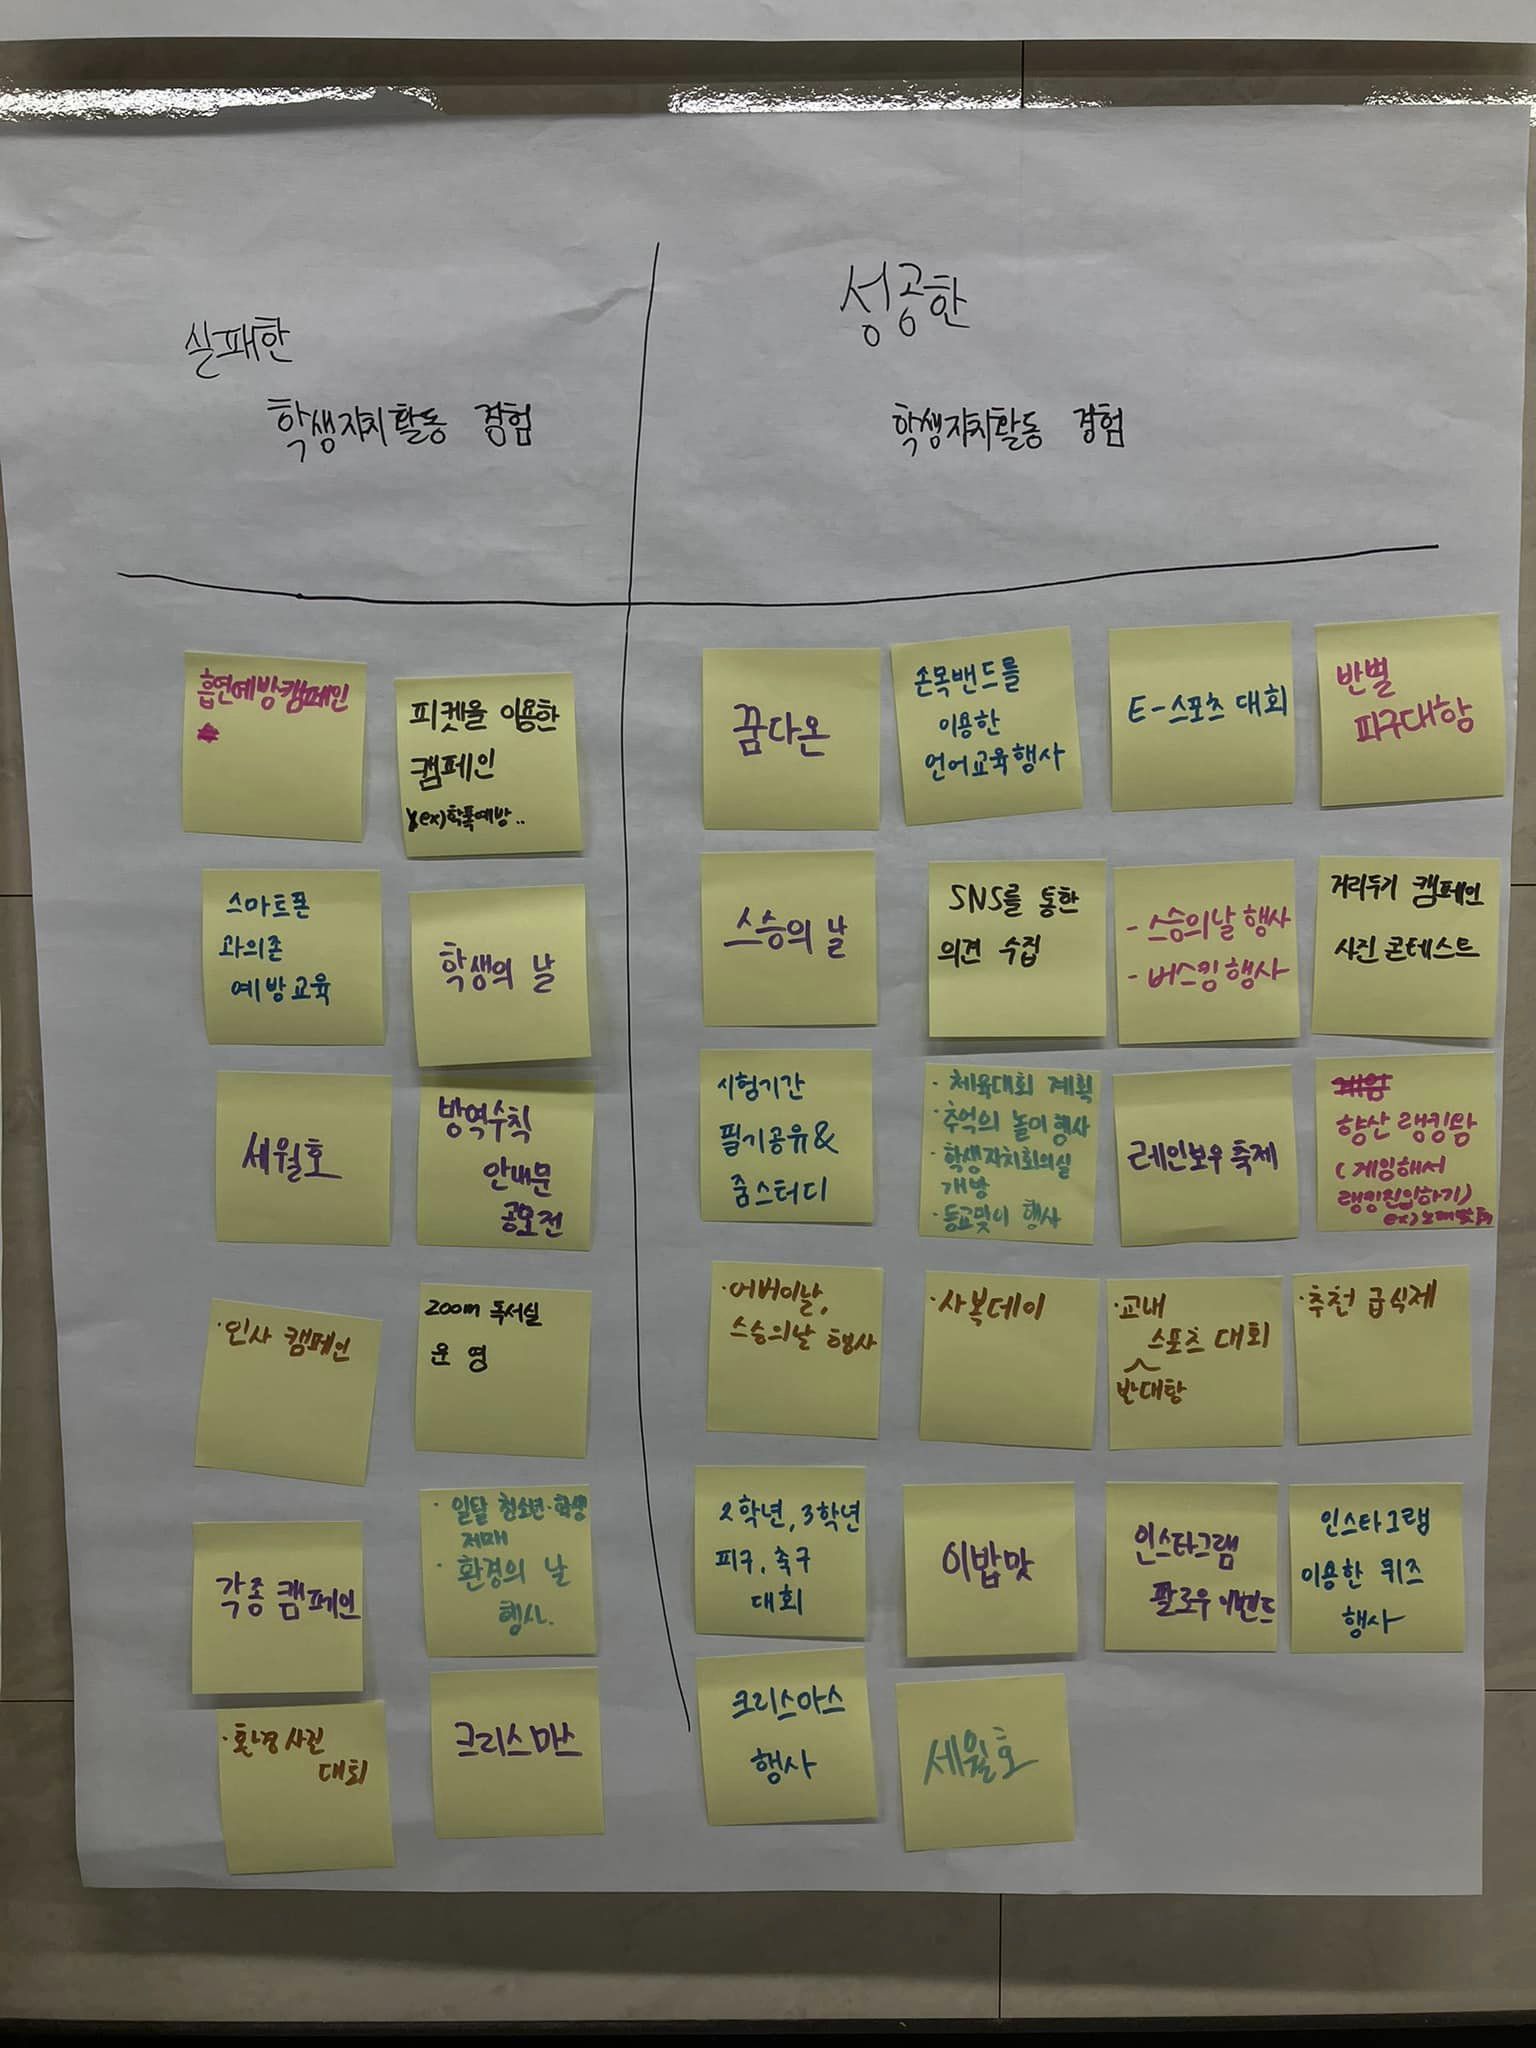 실패한
학생자치활동 경험
성공한
학생자치활동 경험
흡연예방캠페인
피켓을 이용한
캠페인
ex)학폭예방..
스마트폰
과의존
예방교육
학생의 날
세월호
방역수칙
안내문
공모전
·인사 캠페인
zoom 독서실
운영
각종 캠페인
· 일달 청소년·학생
· 환경의 날
행사.
·환경사진
대회
크리스마스
꿈다온
손목밴드를
이용한
언어교육행사
E-스포츠 대회
반별
피구대항
스승의 날
SNS를 통한
의견 수집
- 스승의날 행사
- 버스킹 행사
거리두기 캠페인
사진 콘테스트
시험기간
필기공유&
줌스터디
· 체육대회 계획
· 추억의 놀이 행사
· 학생자치회의실
개방
· 등교맞이 행사
레인보우 축제
향산 랭킹땀
(게임해서
랭킹진입하기)
·어버이날,
스승의날 행사
·사복데이
·교내
스포츠 대회
반대항
·추천 급식제
2학년, 3학년
피구, 축구
대회
이밥맛
인스타그램
팔로우 이벤트
인스타그램
이용한 퀴즈
행사
크리스마스
행사
세월호